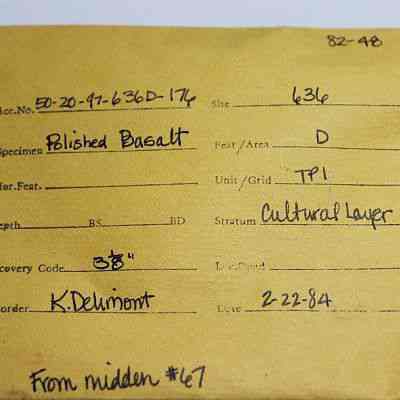 82-48
Acc.No. 50-20-47-636D-176 Site 636
Specimen Polished Basalt Feat/Area D
Hor.Feat. Unit/Grid TP1
Depth BS BD Stratum Cultural Layer
Recovery Code 3/8"
Recorder K.Delimont Date 2-22-84
From midden #67